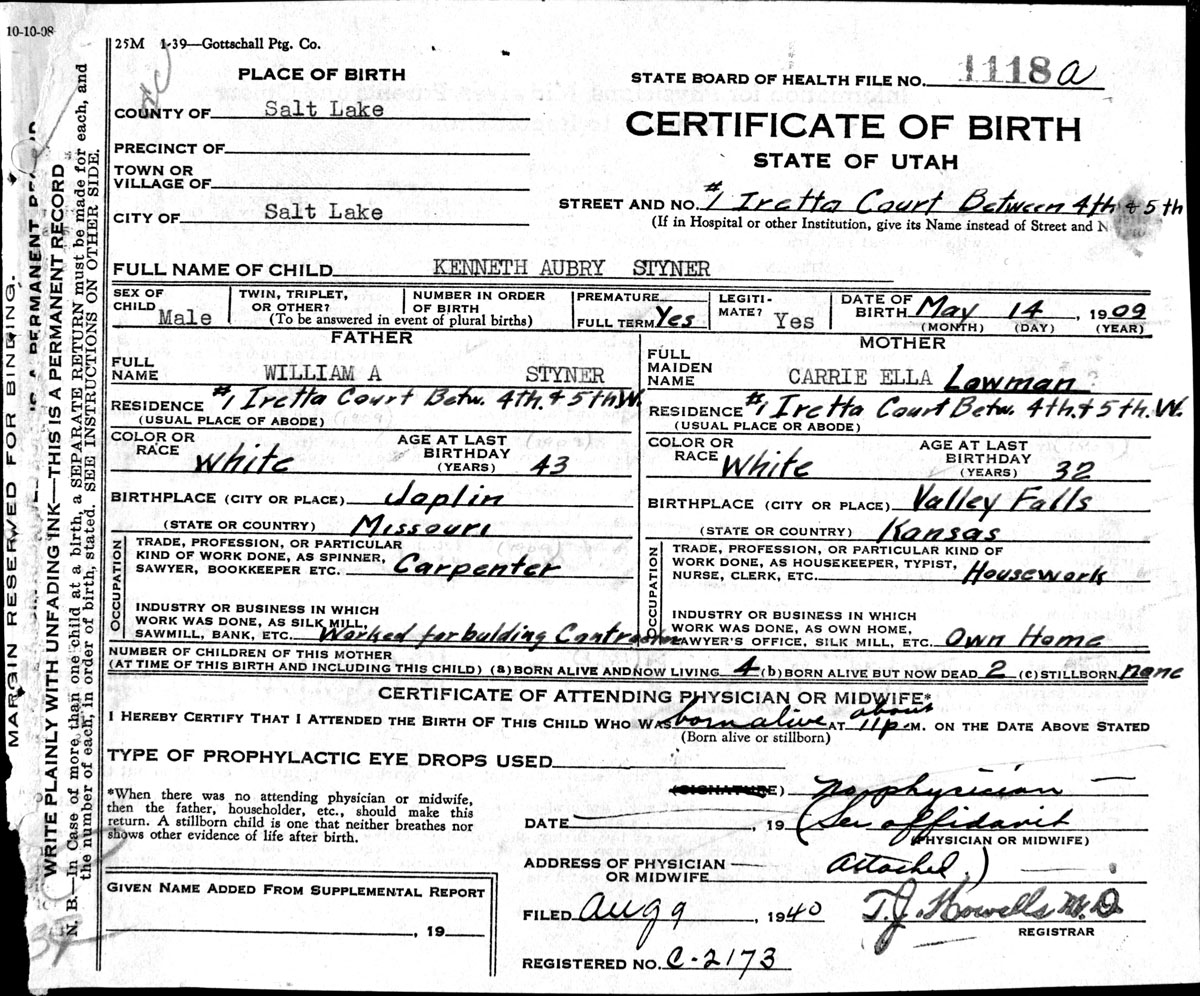 10-10-08
25M 1-39—Gottschall Ptg. Co.
PLACE OF BIRTH
COUNTY OF Salt Lake
PRECINCT OF
TOWN OR
VILLAGE OF
CITY OF Salt Lake
STATE BOARD OF HEALTH FILE NO. 1118 a
CERTIFICATE OF BIRTH
STATE OF UTAH
STREET AND NO. #1 Iretta Court Between 4th & 5th
(If in Hospital or other Institution, give its Name instead of Street and N
FULL NAME OF CHILD KENNETH AUBRY STYNER
SEX OF CHILD Male
TWIN, TRIPLET, OR OTHER?
NUMBER IN ORDER OF BIRTH
(To be answered in event of plural births)
PREMATURE
FULL TERM Yes
LEGITIMATE? Yes
DATE OF BIRTH May 14, 1909
(MONTH) (DAY) (YEAR)
FATHER
FULL NAME WILLIAM A STYNER
RESIDENCE #1 Iretta Court Betw. 4th. & 5th W.
(USUAL PLACE OF ABODE)
COLOR OR RACE White
AGE AT LAST BIRTHDAY (YEARS) 43
BIRTHPLACE (CITY OR PLACE) Joplin
(STATE OR COUNTRY) Missouri
OCCUPATION
TRADE, PROFESSION, OR PARTICULAR
KIND OF WORK DONE, AS SPINNER,
SAWYER, BOOKKEEPER ETC. Carpenter
INDUSTRY OR BUSINESS IN WHICH
WORK WAS DONE, AS SILK MILL,
SAWMILL, BANK, ETC. Worked for bulding Contractor
MOTHER
FULL MAIDEN NAME CARRIE ELLA Lowman
RESIDENCE #1 Iretta Court Betw. 4th. & 5th. W.
(USUAL PLACE OR ABODE)
COLOR OR RACE White
AGE AT LAST BIRTHDAY (YEARS) 32
BIRTHPLACE (CITY OR PLACE) Valley Falls
(STATE OR COUNTRY) Kansas
OCCUPATION
TRADE, PROFESSION, OR PARTICULAR KIND OF
WORK DONE, AS HOUSEKEEPER, TYPIST,
NURSE, CLERK, ETC. Housework
INDUSTRY OR BUSINESS IN WHICH
WORK WAS DONE, AS OWN HOME,
LAWYER'S OFFICE, SILK MILL, ETC. Own Home
NUMBER OF CHILDREN OF THIS MOTHER
(AT TIME OF THIS BIRTH AND INCLUDING THIS CHILD) (a) BORN ALIVE AND NOW LIVING 4 (b) BORN ALIVE BUT NOW DEAD 2 (c) STILLBORN none
CERTIFICATE OF ATTENDING PHYSICIAN OR MIDWIFE*
I HEREBY CERTIFY THAT I ATTENDED THE BIRTH OF THIS CHILD WHO WAS born alive AT about 11 p.M. ON THE DATE ABOVE STATED
(Born alive or stillborn)
TYPE OF PROPHYLACTIC EYE DROPS USED
*When there was no attending physician or midwife,
then the father, householder, etc., should make this
return. A stillborn child is one that neither breathes nor
shows other evidence of life after birth.
(SIGNATURE) No physician
DATE , 19 (See affidavit
(PHYSICIAN OR MIDWIFE)
ADDRESS OF PHYSICIAN OR MIDWIFE Attached)
GIVEN NAME ADDED FROM SUPPLEMENTAL REPORT
, 19
FILED Aug 9, 1940 T. J. Howells M.D.
REGISTRAR
REGISTERED NO. C-2173
MARGIN RESERVED FOR BINDING.
WRITE PLAINLY WITH UNFADING INK—THIS IS A PERMANENT RECORD
N. B.—In Case of more than one child at a birth, a SEPARATE RETURN must be made for each, and
the number of each, in order of birth, stated. SEE INSTRUCTIONS ON OTHER SIDE.